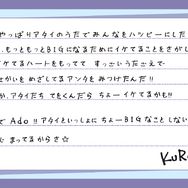 やっぱりアタイのうたでみんなをハッピーにした
、もっともっとBIGになるためにイケてることをさがし
ケてるハートをもってて すっごいうたごえで
せかいを めざしてるアンタをみつけたんだ!!
か、アタイたち てをくんだら ちょーイケてるかも!!
で Ado!! アタイといっしょに ちょーBIGなこと しない
で まってるからさ☆
KuRo